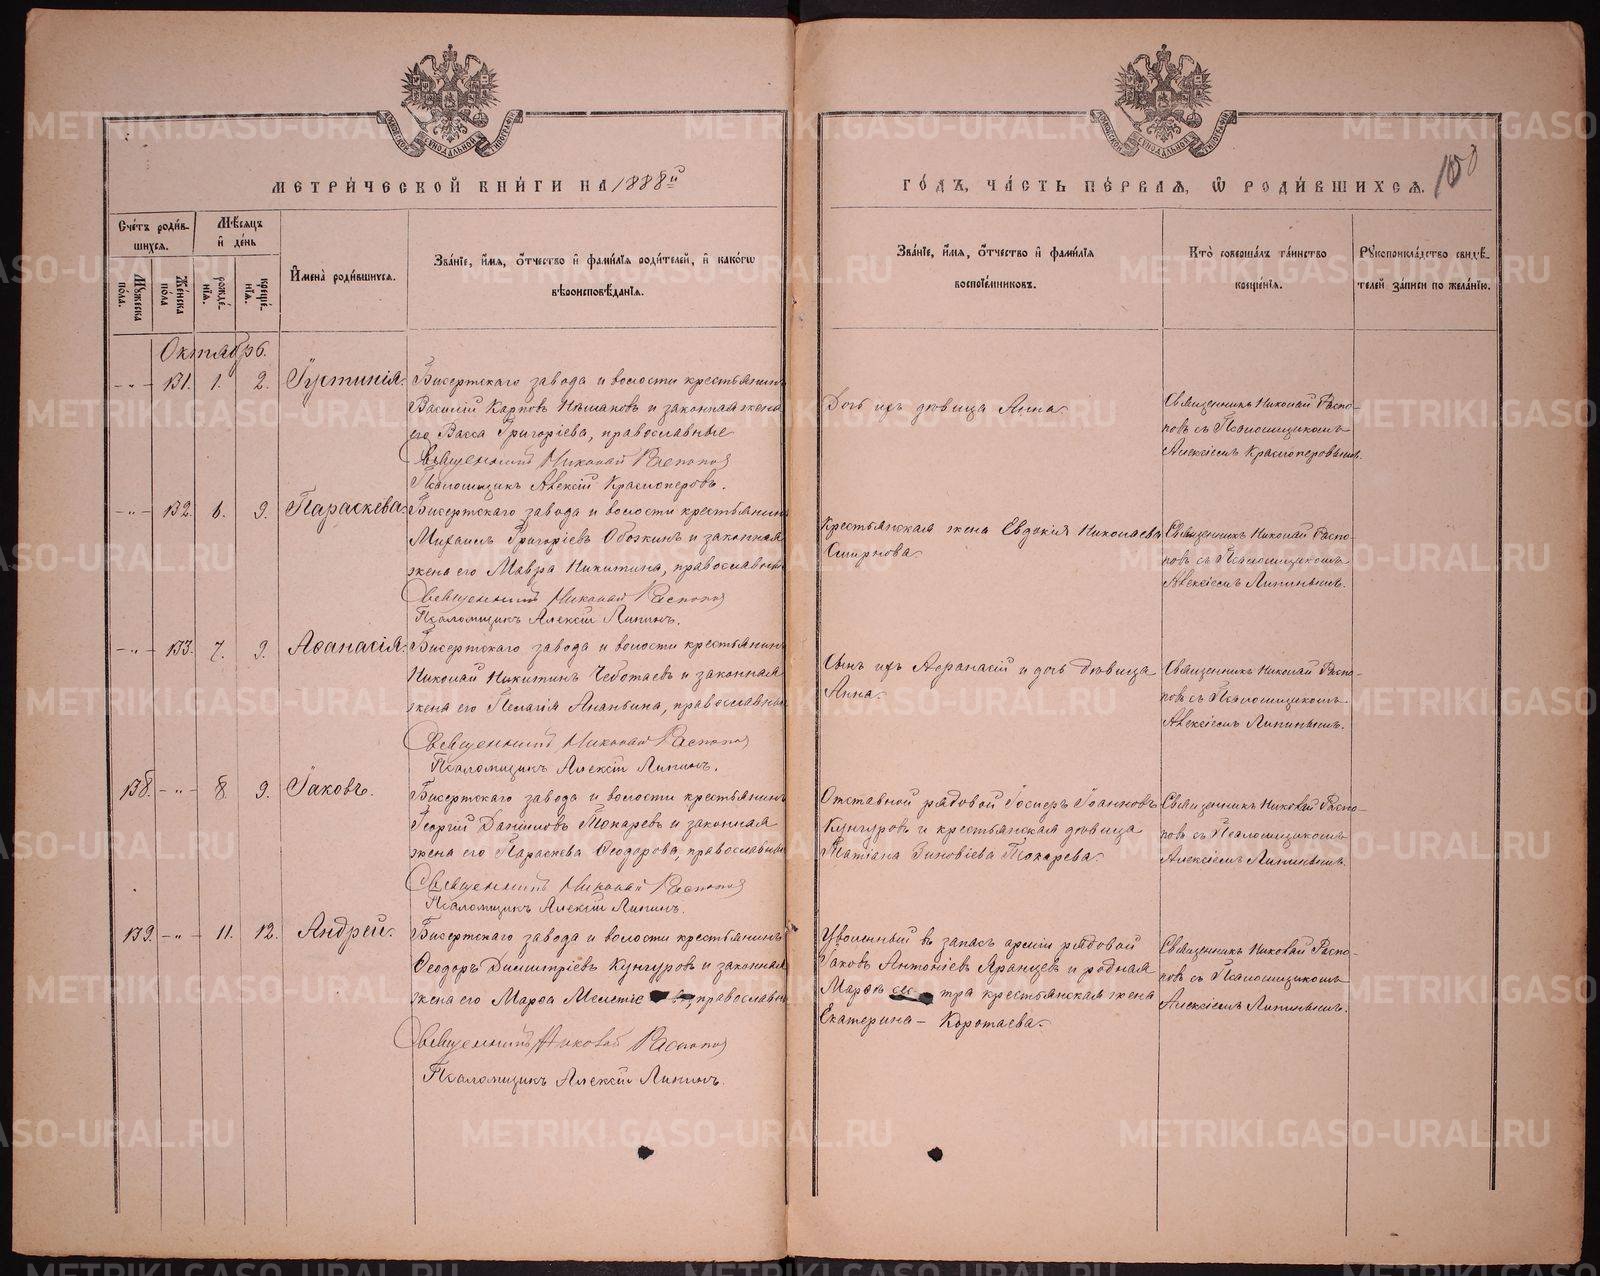 МЕТРИ́ЧЕСКОЙ КНИ́ГИ НА 1888й
ГО́ДЪ, ЧА́СТЬ ПЕ́РВАЯ, Ѿ РОДИ́ВШИХСЯ.
Сче́тъ роди́в-
шихся.
Мѣ́сяцъ
и́ де́нь
Му́жеска
по́ла.
Же́нска
по́ла
рожде́-
нїя.
креще́-
нїя.
И҆мена̀ роди́вшихся.
Зва́нїе, и҆́мя, ѻ҆́тчество и҆ фами́лїя роди́телей, и҆ како́гѡ
вѣроисповѣ́данїя.
Зва́нїе, и҆́мя, ѻ҆́тчество и҆ фами́лїя
воспрїе́мниковъ.
Кто̀ соверша́лъ та́инство
креще́нїя.
Рукоприкла́дство свидѣ́-
телей за́писи по жела́нїю.
Октябрь.
-„- 131. 1. 2. Іустинія.
Бисертскаго завода и волости крестьянинъ
Василій Карповъ и законная жена
его Васса Григоріева, православные
Священникъ Николай Распопов
Псаломщикъ Алексій Красноперовъ.
Дочь ихъ дѣвица Анна.
Священникъ Николай Распо-
повъ съ Псаломщикомъ
Алексіемъ Красноперовымъ.
-„- 132. 6. 9. Параскева.
Бисертскаго завода и волости крестьянинъ
Михаилъ Григоріевъ Обожинъ и законная
жена его Мавра Никитина, православные
Священникъ Николай Распопов
Псаломщикъ Алексій Липинъ.
Крестьянская жена Евдокія Николаева
Смирнова.
Священникъ Николай Распо-
повъ съ Псаломщикомъ
Алексіемъ Липинымъ.
-„- 133. 7. 9. Аѳанасія.
Бисертскаго завода и волости крестьянинъ
Николай Никитинъ Чеботаевъ и законная
жена его Пелагія Ананьина, православные
Священникъ Николай Распопов
Псаломщикъ Алексій Липинъ.
Сынъ ихъ Афанасій и дочь дѣвица
Анна.
Священникъ Николай Распо-
повъ съ Псаломщикомъ
Алексіемъ Липинымъ.
138. -„- 8. 9. Іаковъ.
Бисертскаго завода и волости крестьянинъ
Георгій Даниловъ Токаревъ и законная
жена его Параскева Ѳеодорова, православные
Священникъ Николай Распопов
Псаломщикъ Алексій Липинъ.
Отставной рядовой Іосифъ Іоанновъ
Кунгуровъ и крестьянская дѣвица
Татіана Зиновіева Токарева.
Священникъ Николай Распо-
повъ съ Псаломщикомъ
Алексіемъ Липинымъ.
139. -„- 11. 12. Андрей.
Бисертскаго завода и волости крестьянинъ
Ѳеодоръ Димитріевъ Кунгуровъ и законная
жена его Марѳа Мелетіе православные
Священникъ Николай Распопов
Псаломщикъ Алексій Липинъ.
Уволенный въ запасъ арміи рядовой
Іаковъ Антоніевъ Яранцев и родная
Марѳѣ сес-тра крестьянская жена
Екатерина - Коротаева.
Священникъ Николай Распо-
повъ съ Псаломщикомъ
Алексіемъ Липинымъ.
METRIKI.GASO-URAL.RU